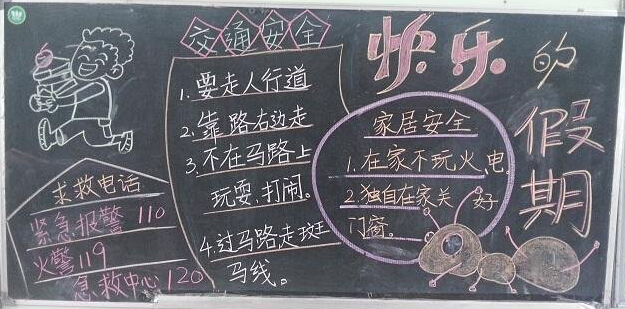 快乐的
假期
交通安全
1.要走人行道
2.靠路右边走
3.不在马路上
玩耍,打闹。
4.过马路走斑
马线。
家居安全
1.在家不玩火,电。
2.独自在家关好
门窗。
求救电话
紧急报警 110
火警119
急救中心120